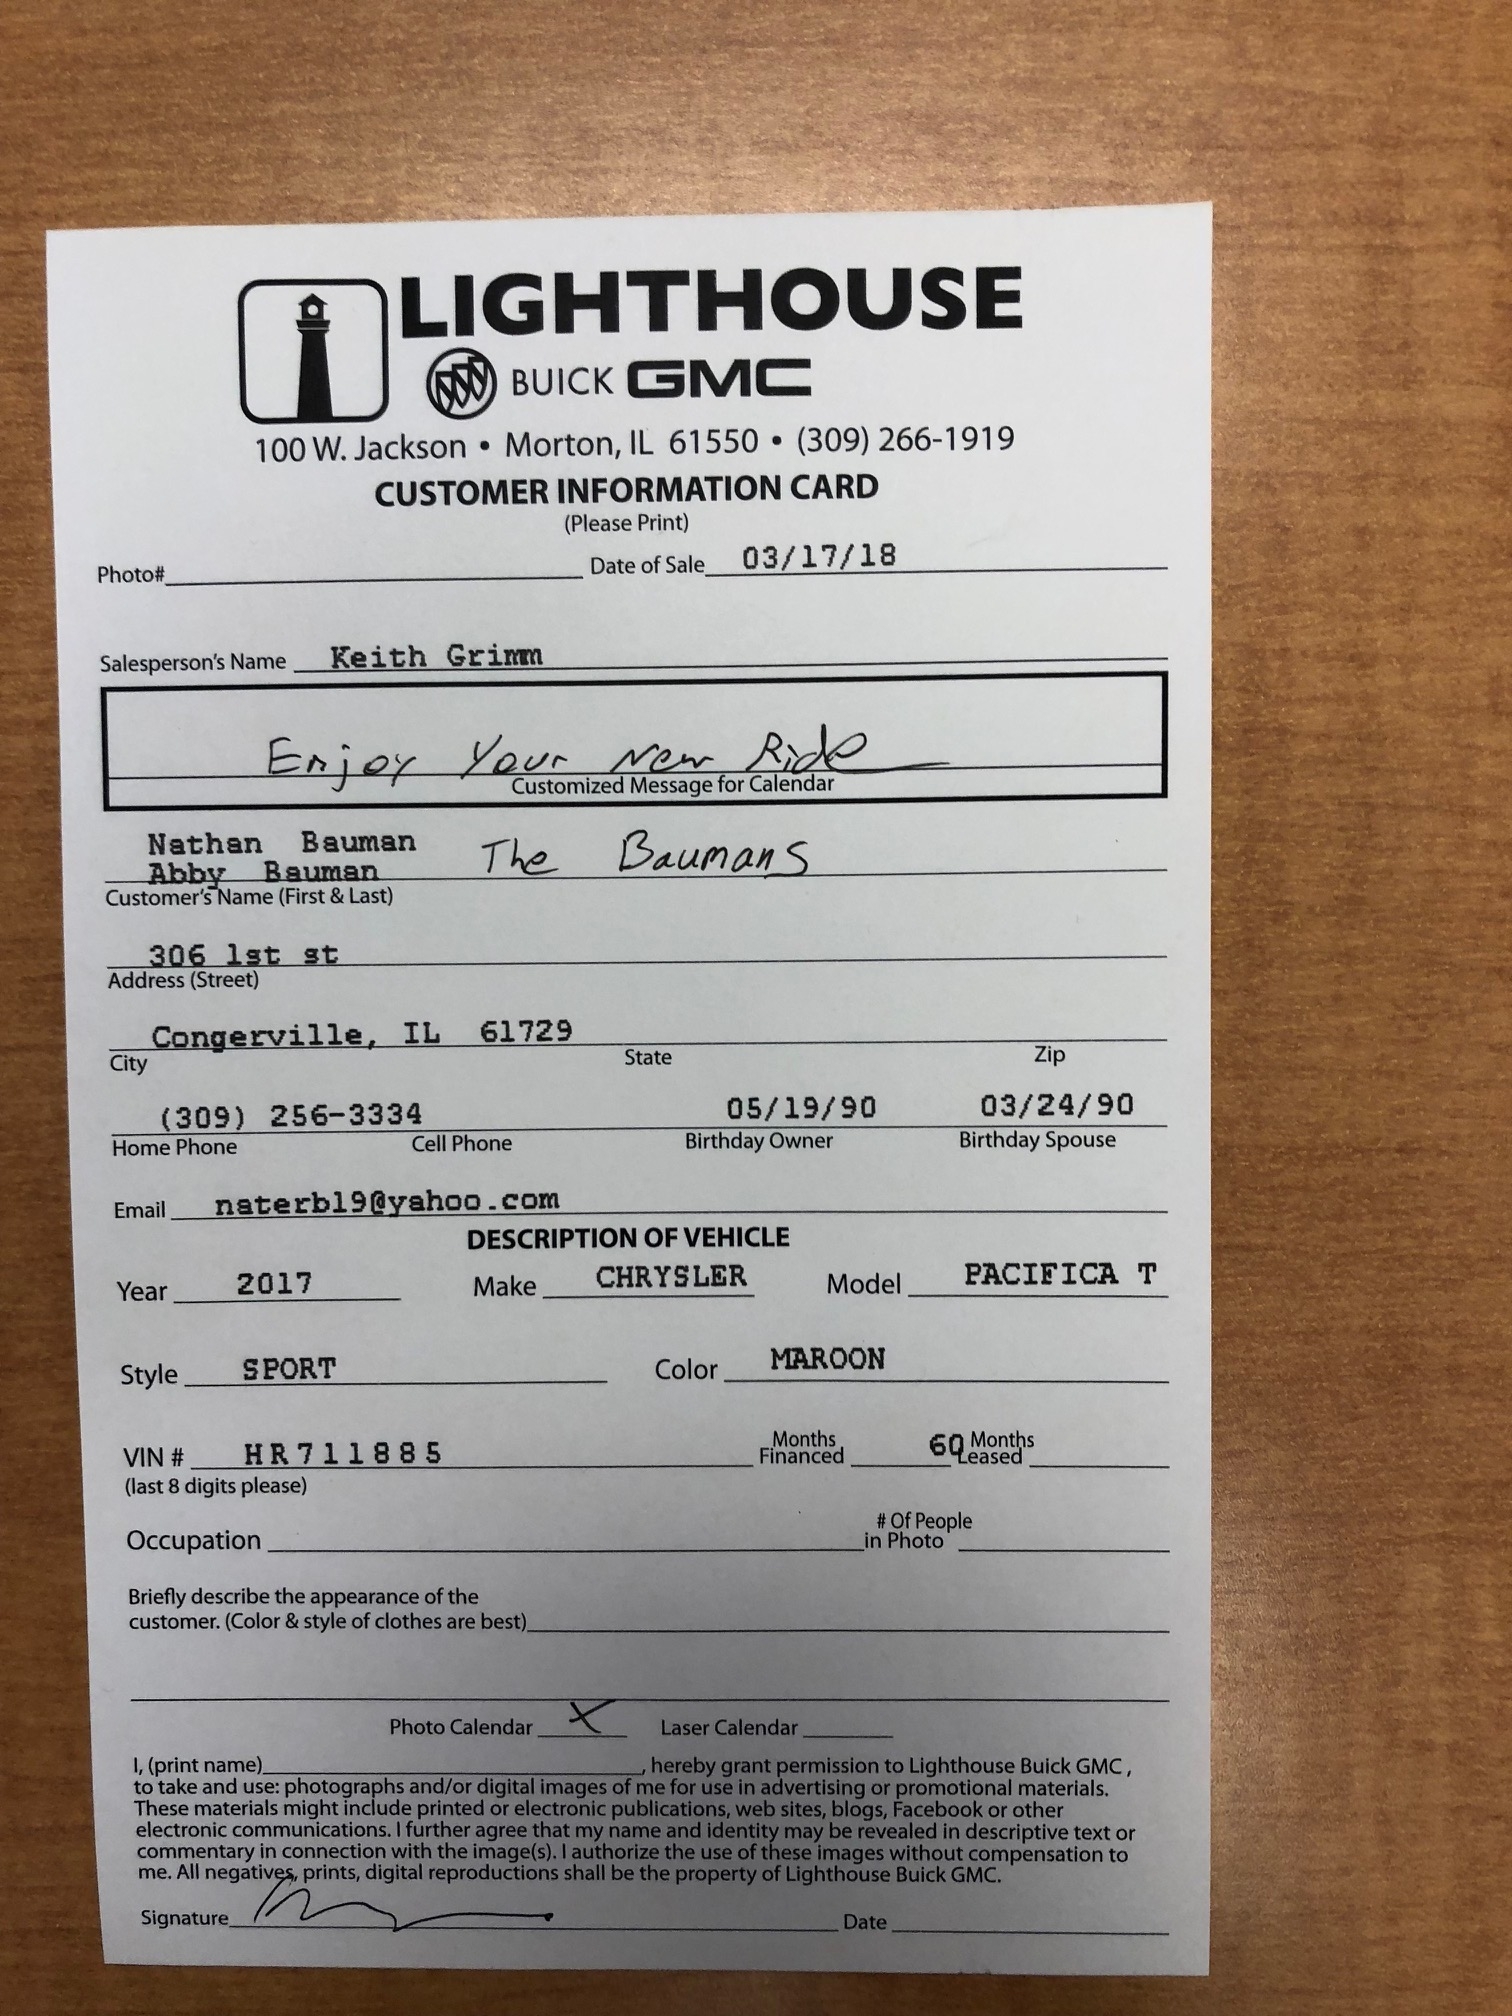 LIGHTHOUSE
BUICK GMC
100 W. Jackson • Morton, IL 61550 • (309) 266-1919
CUSTOMER INFORMATION CARD
(Please Print)
Photo# Date of Sale 03/17/18
Salesperson's Name Keith Grimm
Enjoy Your New Ride
Customized Message for Calendar
Nathan Bauman
Abby Bauman The Baumans
Customer's Name (First & Last)
306 1st st
Address (Street)
Congerville, IL 61729
City State Zip
(309) 256-3334 05/19/90 03/24/90
Home Phone Cell Phone Birthday Owner Birthday Spouse
Email naterb19@yahoo.com
DESCRIPTION OF VEHICLE
Year 2017 Make CHRYSLER Model PACIFICA T
Style SPORT Color MAROON
VIN # HR711885 Months Financed 60 Months Leased
(last 8 digits please)
Occupation # Of People in Photo
Briefly describe the appearance of the
customer. (Color & style of clothes are best)
Photo Calendar X Laser Calendar
I, (print name) , hereby grant permission to Lighthouse Buick GMC,
to take and use: photographs and/or digital images of me for use in advertising or promotional materials.
These materials might include printed or electronic publications, web sites, blogs, Facebook or other
electronic communications. I further agree that my name and identity may be revealed in descriptive text or
commentary in connection with the image(s). I authorize the use of these images without compensation to
me. All negatives, prints, digital reproductions shall be the property of Lighthouse Buick GMC.
Signature Date